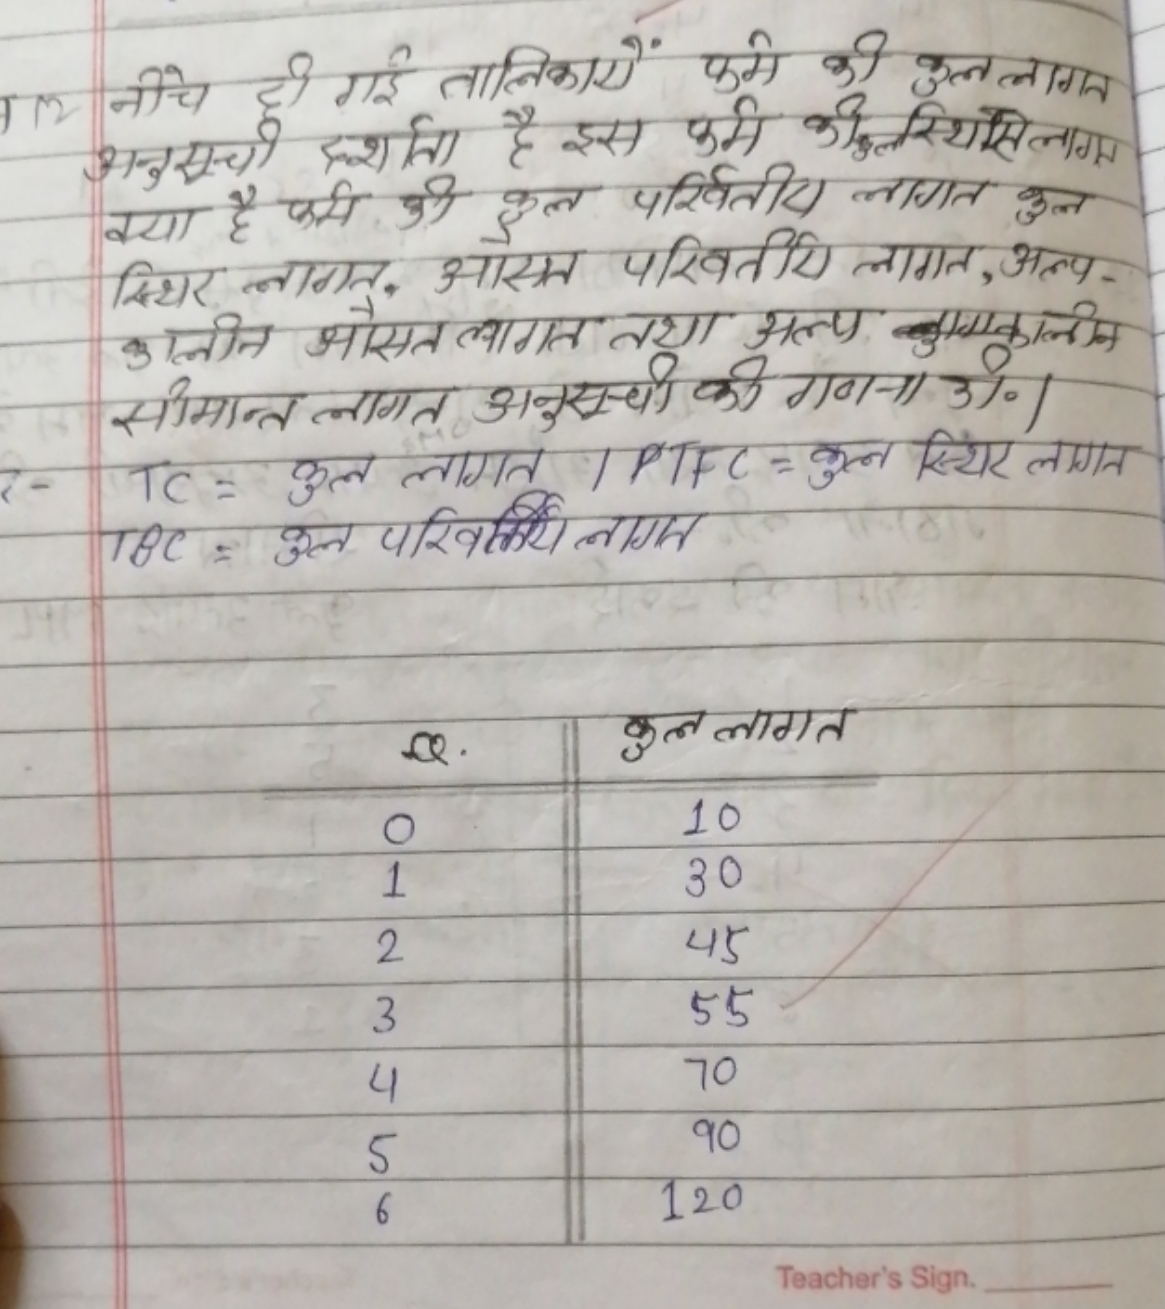 नीचे दी गई तालिकायें फर्म की कुल लागत
अनुसूची दर्शाता है इस फर्म की कुल स्थिर लागत
क्या है फर्म की कुल परिर्वतीय लागत कुल
स्थिर लागत, औसत परिवर्तीय लागत, अल्प-
कालीन औसत लागत तथा अल्प कालीन
सीमान्त लागत अनुसूची की गणना की।
TC = कुल लागत / PTFC = कुल स्थिर लागत
= कुल परिवर्तीय लागत
Q. कुल लागत
0 10
1 30
2 45
3 55
4 70
5 90
6 120
Teacher's Sign.